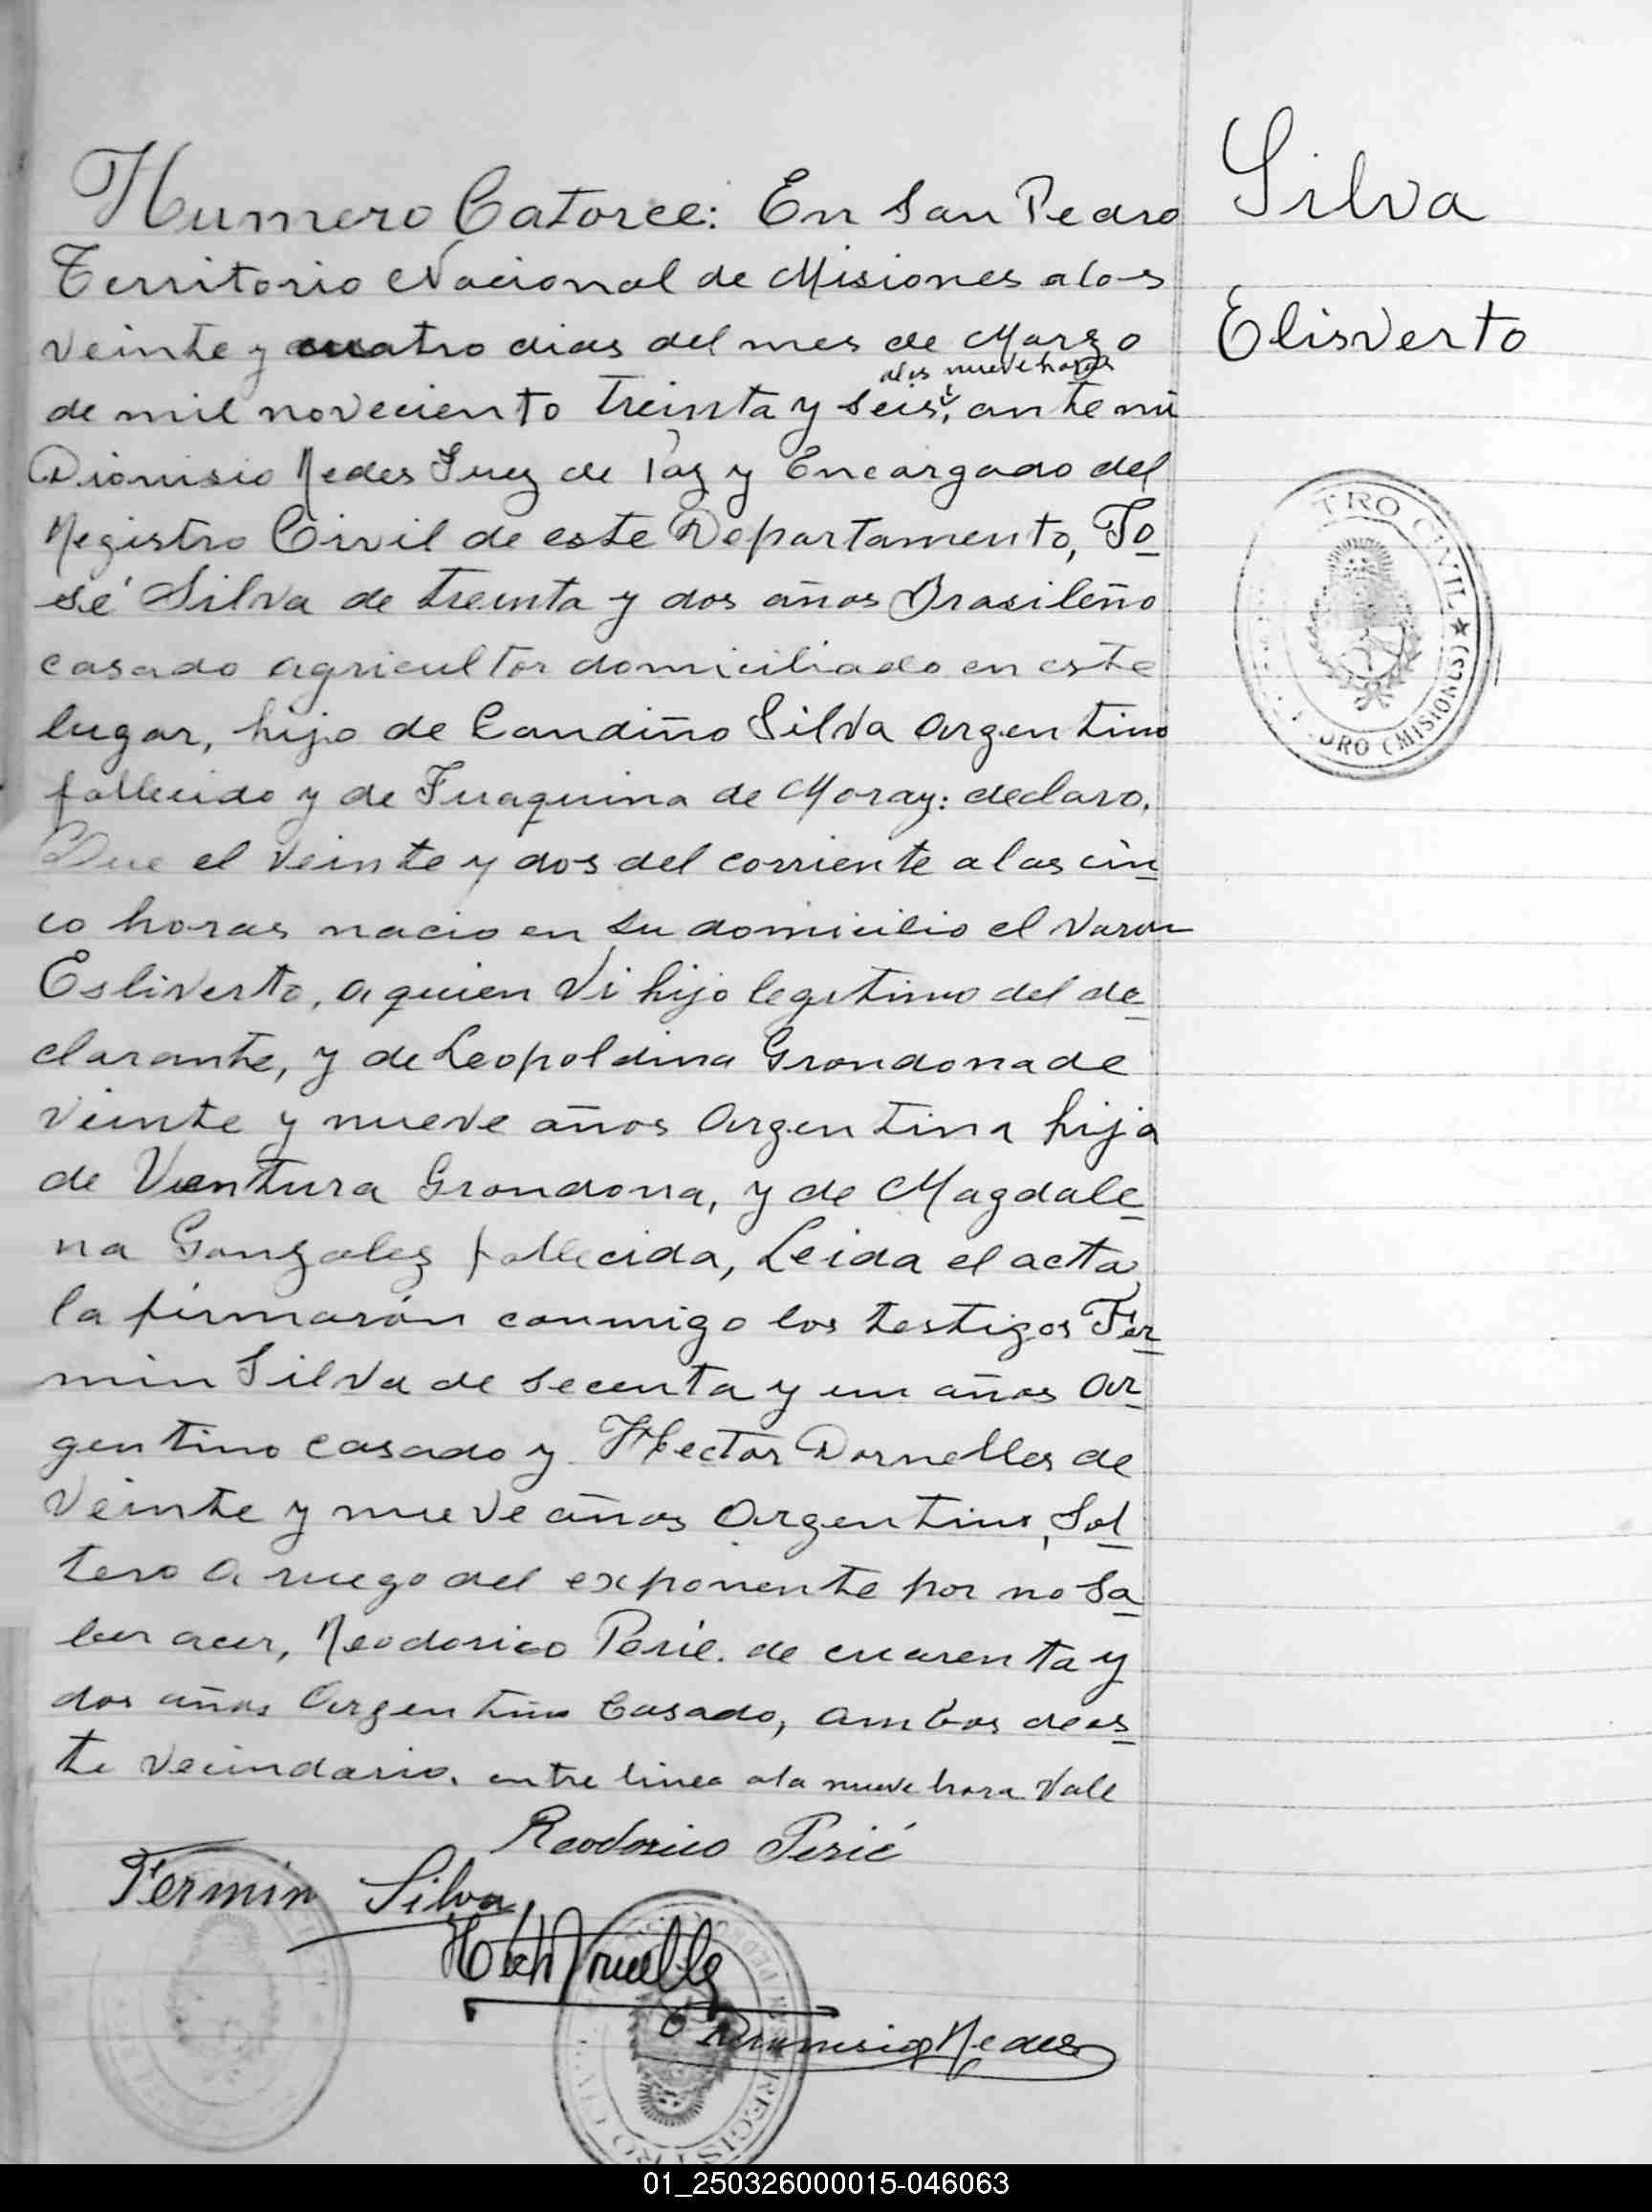 Numero Catorce: En San Pedro
Territorio Nacional de Misiones a los
veinte y cuatro dias del mes de Marzo
alas nueve horas
de mil noveciento treinta y seis, ante mi
Dionisio Redes Juez de Paz y Encargado del
Registro Civil de este Departamento, Jo
sé Silva de treinta y dos años Brasileño
casado agricultor domiciliado en este
lugar, hijo de Candiño Silva argentino
fallecido y de Juaquina de Moray: declaro.
Que el veinte y dos del corriente a las cin
co horas nacio en su domicilio el varon
Esliverto, a quien vi hijo legitimo del de
clarante, y de Leopoldina Grondona de
veinte y nueve años argentina hija
de Ventura Grondona, y de Magdale
na Gonzalez fallecida, Leida el acta
la firmarón conmigo los testigos Fer
min Silva de secenta y un años ar
gentino casado y Hector Dornelles de
veinte y nueve años argentino, Sol
tero a ruego del exponente por no sa
ber acer, Reodorico Perié. de cuarenta y
dos años Argentino Casado, ambos de es
te vecindario. entre linea ala nueve hora Vale
Reodorico Perié
Fermin Silva
Dionisio Redes
Silva
Elisverto
TRO CIVIL ★
DRO (MISIONES)
REGISTRO CIVIL
01_250326000015-046063